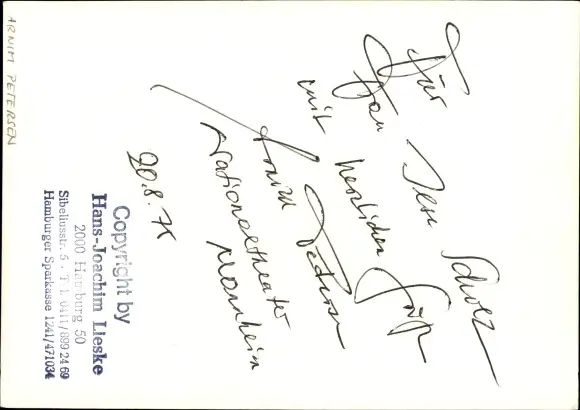 ARNIM PETERSEN
Für
Frau Scholz
mit herzlichem Gruß
Arnim Petersen
Nationaltheater
Mannheim
20.8.
Copyright by
Hans-Joachim Lieske
2000 Hamburg 50
Sibeliusstr. 5 · Tel. 0411/899 24 69
Hamburger Sparkasse 1241/471034